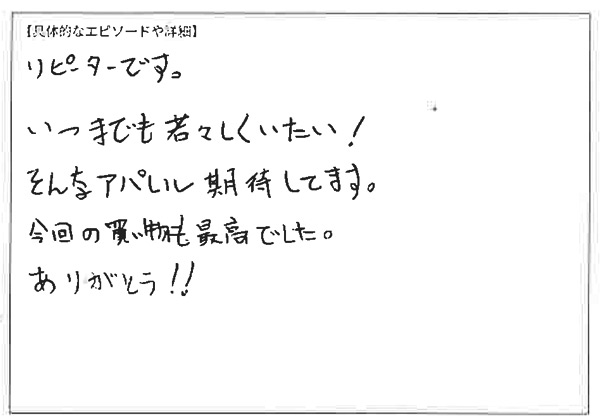 【具体的なエピソードや詳細】
リピーターです。
いつまでも若々しくいたい！
そんなアパレル期待してます。
今回の買い物も最高でした。
ありがとう!!